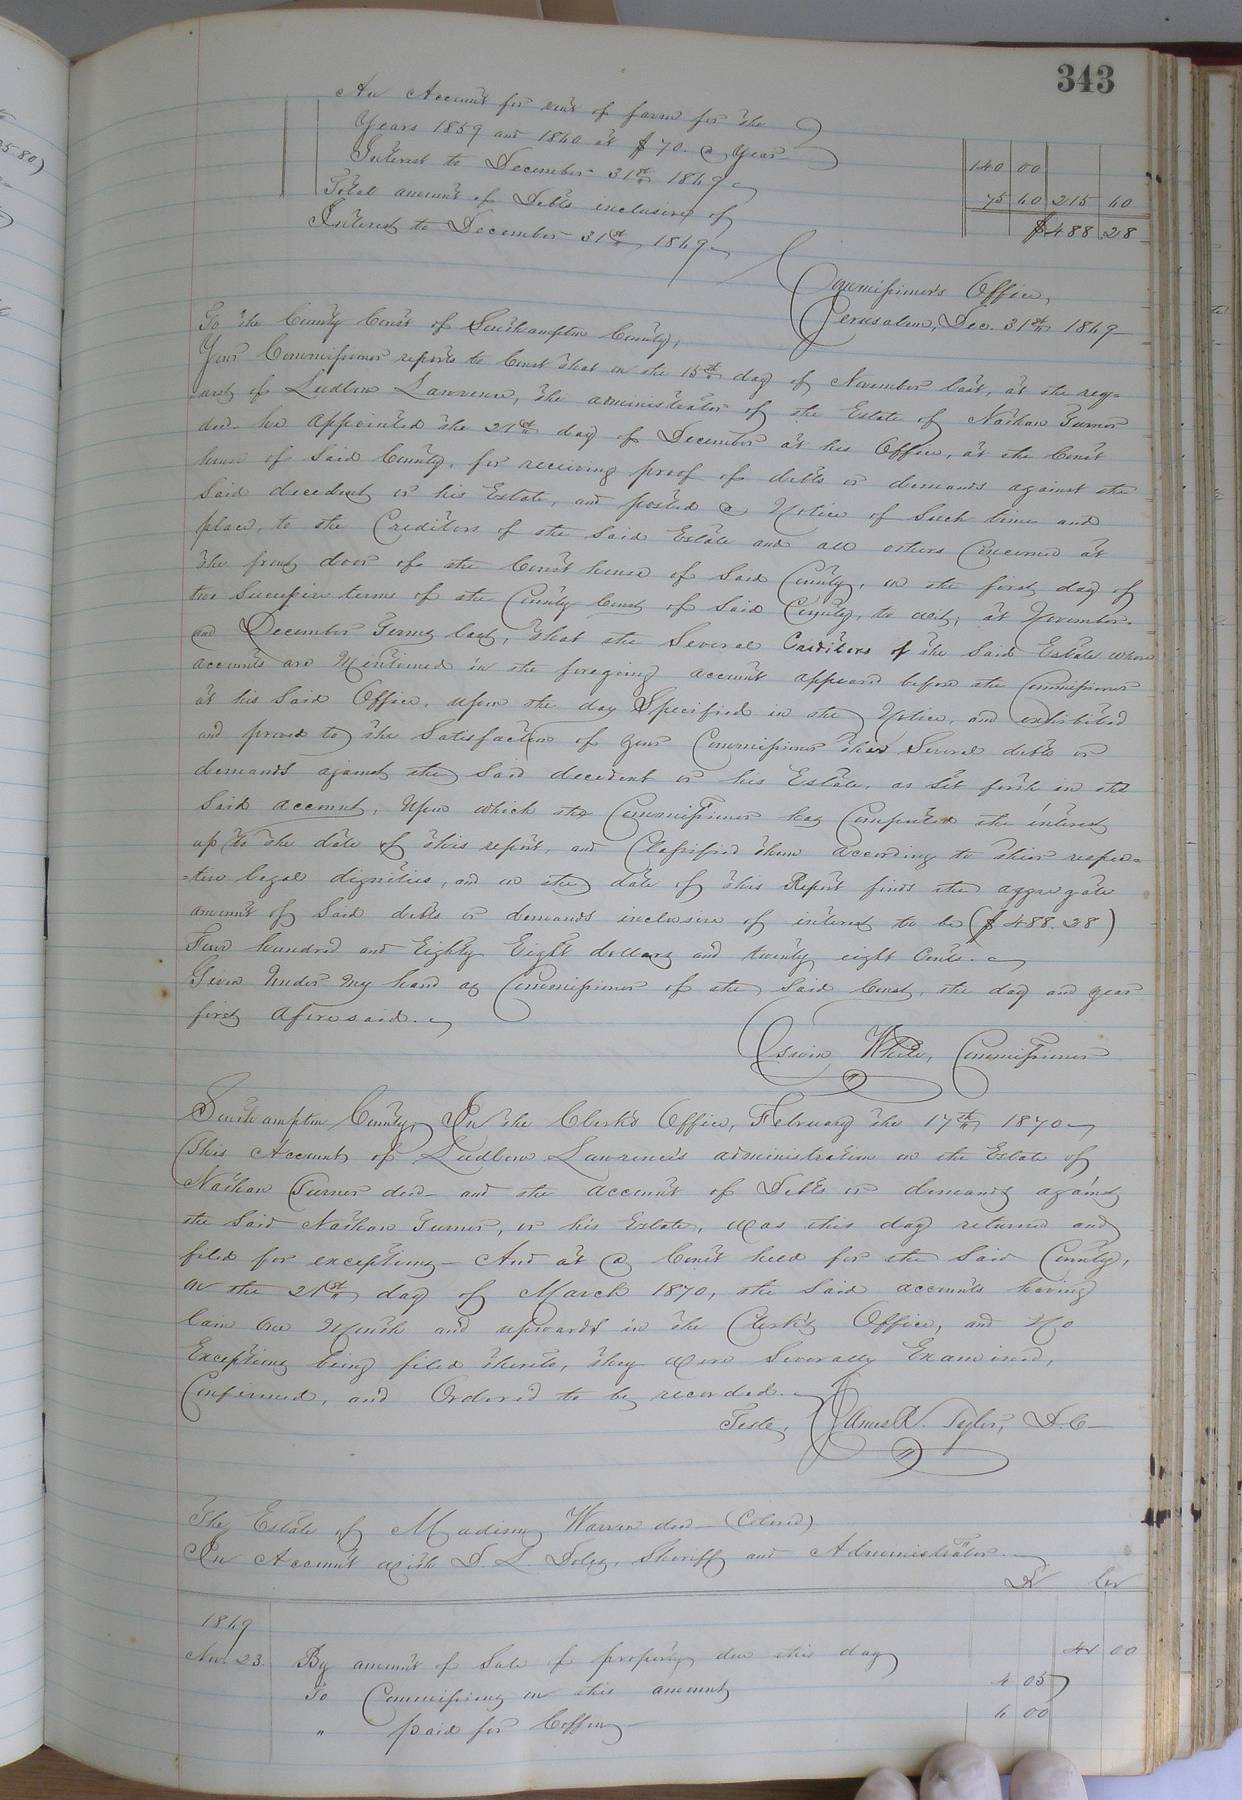 343
An Account for rent of farm for the
Years 1859 and 1860 at $70. a Year
Interest to December 31st 1869
140 00
Total amount of Debts inclusive of
75 60 215 60
Interest to December 31st, 1869
$488.28
Commissioner's Office,
Jerusalem, Dec. 31st 1869
To the County Court of Southampton County,
Your Commissioner reports to Court that on the 15th day of November last, at the req=
uest of Ludlow Lawrence, the administrator of the Estate of Nathan Turner
decd. he appointed the 21st day of December at his Office, at the Court
house of Said County, for receiving proof of debts or demands against the
Said decedent or his Estate, and posted a Notice of Such time and
place, to the Creditors of the Said Estate and all others Concerned at
the front door of the Court house of Said County, on the first day of
two Successive terms of the County Court of Said County, to wit, at November
and December Terms last, that the Several Creditors of the Said Estate whose
accounts are Mentioned in the foregoing account appeared before the Commissioner
at his Said Office, upon the day Specified in the Notice, and exhibited
and proved to the Satisfaction of your Commissioner their Several debts or
demands against the Said decedent or his Estate, as Set forth in the
Said account, Upon which the Commissioner has Computed the interest
up to the date of this report, and Classified them according to thier respec=
=tive legal dignities, and on the date of this Report finds the aggregate
amount of Said debts or demands inclusive of interest to be ($488.28)
Four hundred and Eighty Eight dollars and twenty eight Cents.
Given Under My hand as Commissioner of the Said Court, the day and year
first aforesaid.
White, Commissioner
Southampton County, In the Clerk's Office, February the 17th, 1870
This Account of Ludlow Lawrence's administration on the Estate of
Nathan Turner decd and the account of Debts or demands against
the Said Nathan Turner, or his Estate, was this day returned and
filed for exceptions - And at a Court held for the Said County,
on the 21st day of March 1870, the Said accounts having
lain One Month and upwards in the Clerk's Office, and No
Exceptions being filed thereto, they were Severally Examined,
Confirmed, and Ordered to be recorded.
Teste, James R. Tyler, D.C
The Estate of Madison Warren decd (Colored)
In Account with Sheriff and Administrator.
Dr Cr
1869
Nov. 23. By amount of Sale of property due this day 00
To Commissions on this amount 4 05
" paid for Coffin 6 00